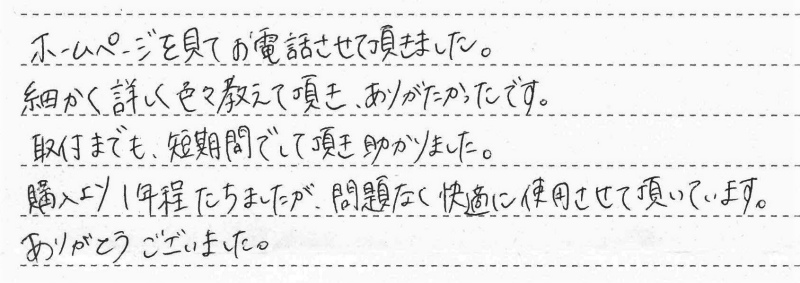 ホームページを見てお電話させて頂きました。
細かく詳しく色々教えて頂き、ありがたかったです。
取付までも、短期間でして頂き助かりました。
購入より1年程たちましたが、問題なく快適に使用させて頂いています。
ありがとうございました。